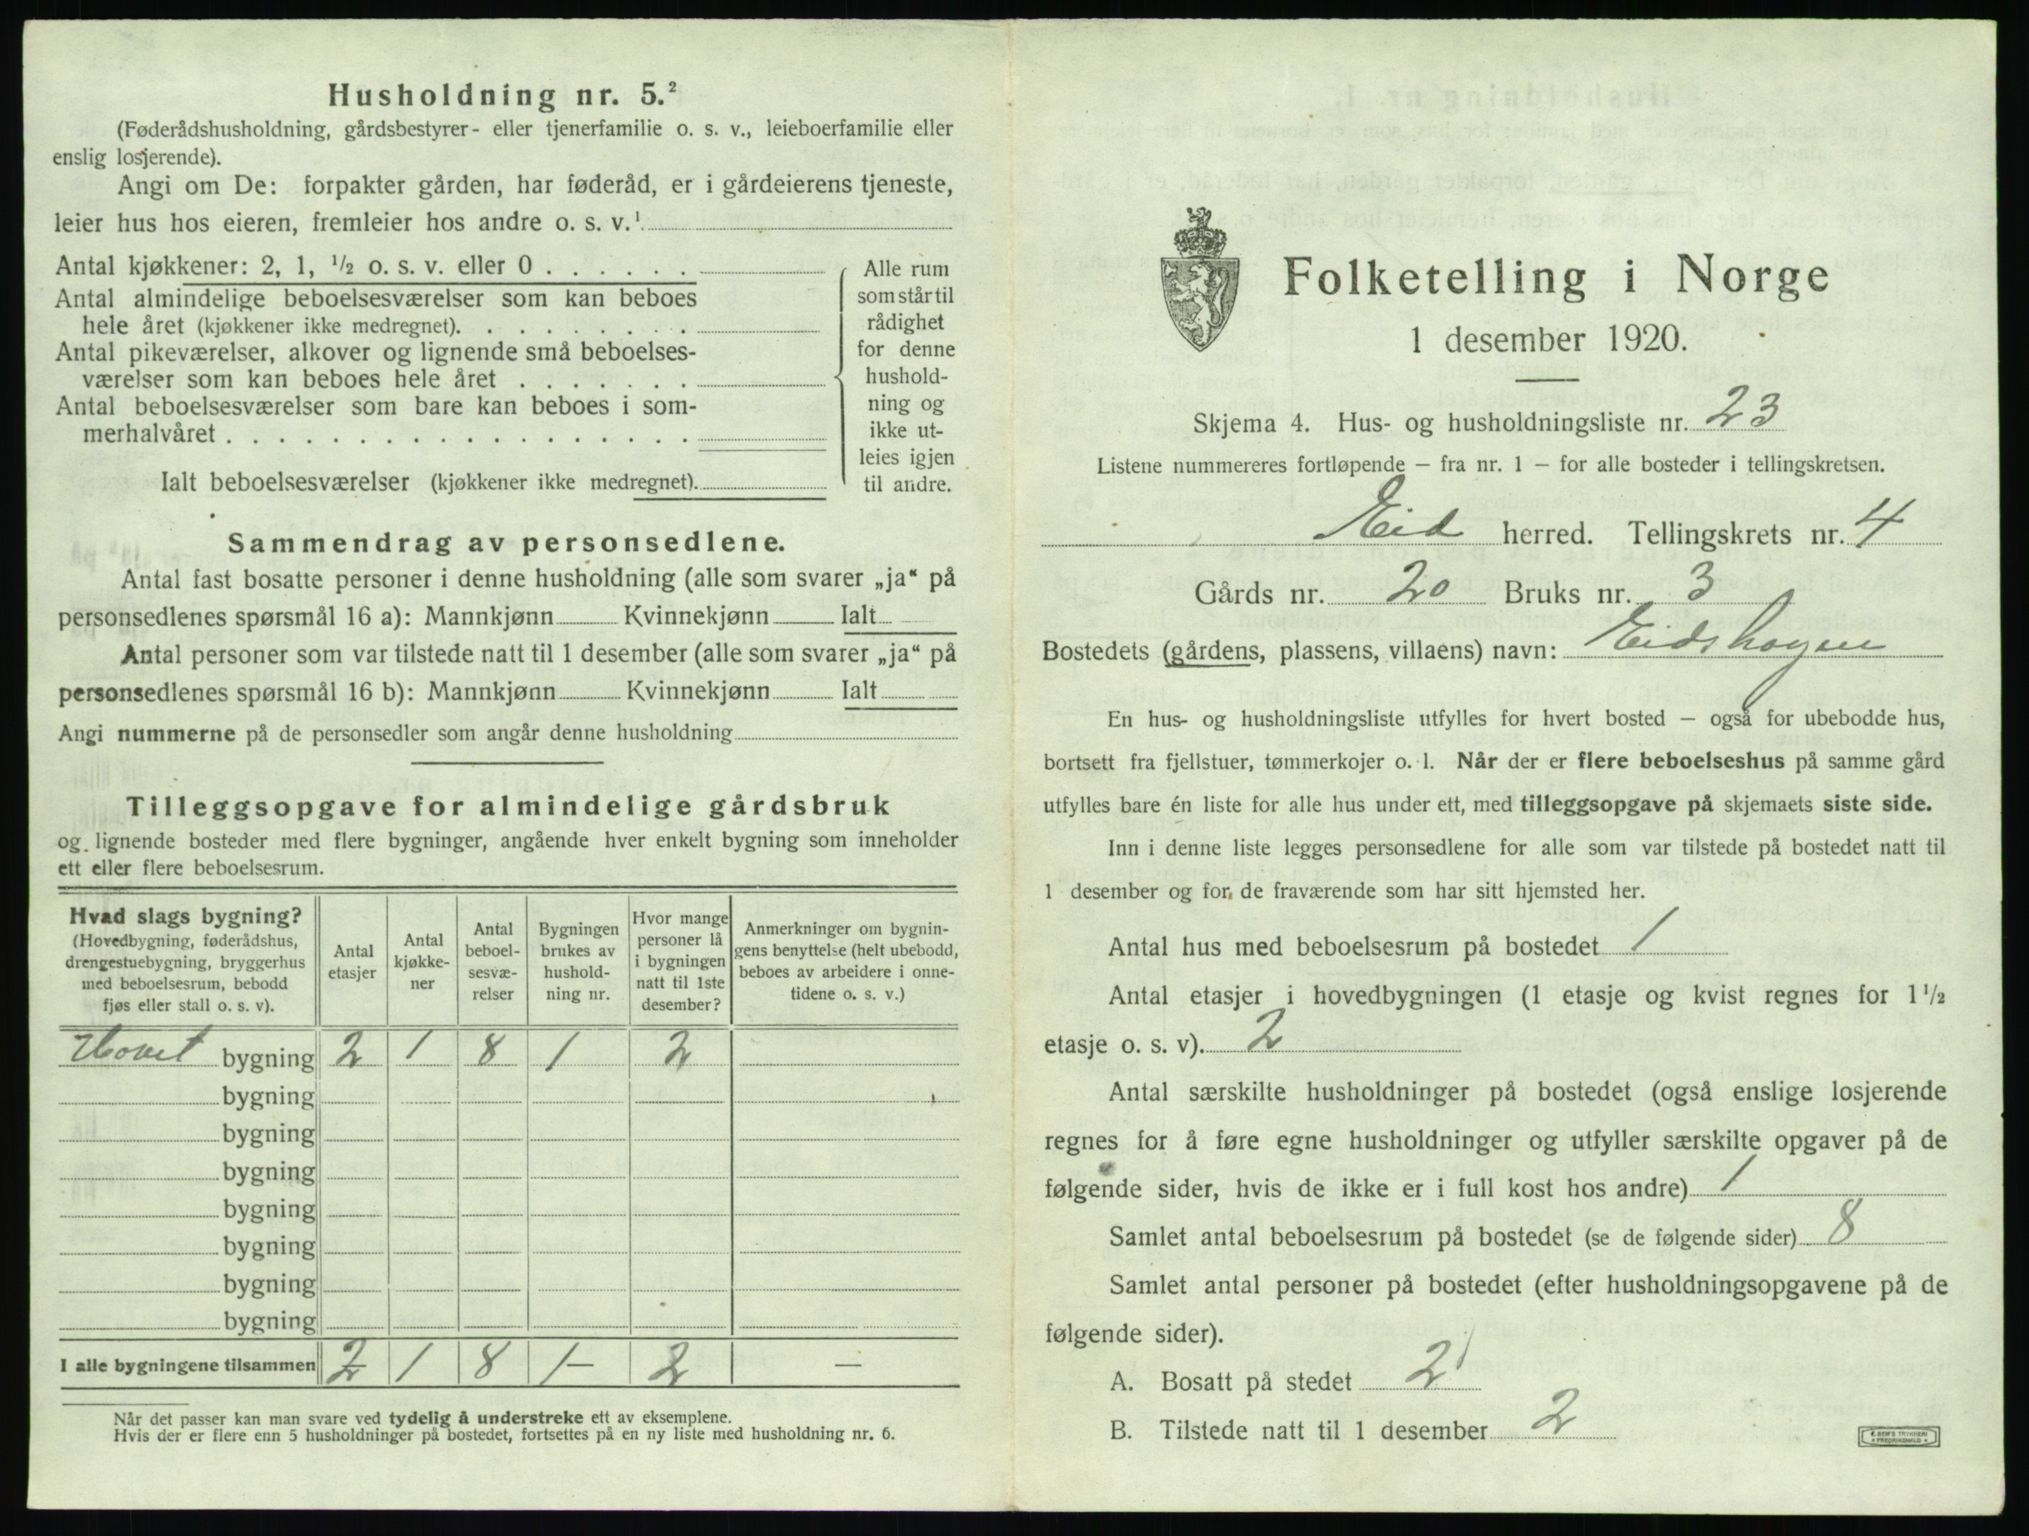 Husholdning nr. 5.²
(Føderådshusholdning, gårdsbestyrer- eller tjenerfamilie o. s. v., leieboerfamilie eller
enslig losjerende).
Angi om De: forpakter gården, har føderåd, er i gårdeierens tjeneste,
leier hus hos eieren, fremleier hos andre o. s. v.¹
Antal kjøkkener: 2, 1, ½ o. s. v. eller 0 . . . . . .
Antal almindelige beboelsesværelser som kan beboes
hele året (kjøkkener ikke medregnet). . . . . . . . .
Antal pikeværelser, alkover og lignende små beboelses-
værelser som kan beboes hele året . . . . . . .
Antal beboelsesværelser som bare kan beboes i som-
merhalvåret . . . . . . . . . . . . . . . . . .
Ialt beboelsesværelser (kjøkkener ikke medregnet).
Alle rum
som står til
rådighet
for denne
hushold-
ning og
ikke ut-
leies igjen
til andre.
Sammendrag av personsedlene.
Antal fast bosatte personer i denne husholdning (alle som svarer „ja“ på
personsedlenes spørsmål 16 a): Mannkjønn Kvinnekjønn Ialt
Antal personer som var tilstede natt til 1 desember (alle som svarer „ja“ på
personsedlenes spørsmål 16 b): Mannkjønn Kvinnekjønn Ialt
Angi nummerne på de personsedler som angår denne husholdning
Tilleggsopgave for almindelige gårdsbruk
og lignende bosteder med flere bygninger, angående hver enkelt bygning som inneholder
ett eller flere beboelsesrum.
Hvad slags bygning?
(Hovedbygning, føderådshus,
drengestuebygning, bryggerhus
med beboelsesrum, bebodd
fjøs eller stall o. s. v).
Antal
etasjer
Antal
kjøkke-
ner
Antal
beboel-
sesvæ-
relser
Bygningen
brukes av
hushold-
ning nr.
Hvor mange
personer lå
i bygningen
natt til 1ste
desember?
Anmerkninger om bygnin-
gens benyttelse (helt ubebodd,
beboes av arbeidere i onne-
tidene o. s. v.)
Hovet bygning 2 1 8 1 2
bygning
bygning
bygning
bygning
bygning
bygning
bygning
I alle bygningene tilsammen 2 1 8 1 – 2 —
Når det passer kan man svare ved tydelig å understreke ett av eksemplene.
Hvis der er flere enn 5 husholdninger på bostedet, fortsettes på en ny liste med husholdning nr. 6.
Folketelling i Norge
1 desember 1920.
Skjema 4. Hus- og husholdningsliste nr. 23
Listene nummereres fortløpende — fra nr. 1 — for alle bosteder i tellingskretsen.
Eid herred. Tellingskrets nr. 4
Gårds nr. 20 Bruks nr. 3
Bostedets (gårdens, plassens, villaens) navn: Eidshagen
En hus- og husholdningsliste utfylles for hvert bosted — også for ubebodde hus,
bortsett fra fjellstuer, tømmerkojer o. l. Når der er flere beboelseshus på samme gård
utfylles bare én liste for alle hus under ett, med tilleggsopgave på skjemaets siste side.
Inn i denne liste legges personsedlene for alle som var tilstede på bostedet natt til
1 desember og for de fraværende som har sitt hjemsted her.
Antal hus med beboelsesrum på bostedet 1
Antal etasjer i hovedbygningen (1 etasje og kvist regnes for 1½
etasje o. s. v). 2
Antal særskilte husholdninger på bostedet (også enslige losjerende
regnes for å føre egne husholdninger og utfyller særskilte opgaver på de
følgende sider, hvis de ikke er i full kost hos andre) 1
Samlet antal beboelsesrum på bostedet (se de følgende sider) 8
Samlet antal personer på bostedet (efter husholdningsopgavene på de
følgende sider).
A. Bosatt på stedet 2
B. Tilstede natt til 1 desember 2